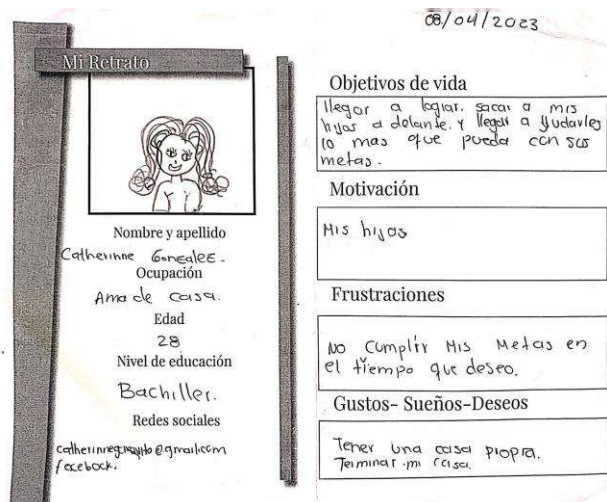 08/04/2023
Mi Retrato
Nombre y apellido
Catherinne Gonzalez.
Ocupación
Ama de casa.
Edad
28
Nivel de educación
Bachiller.
Redes sociales
facebook.
Objetivos de vida
llegar a lograr. sacar a mis
hijos a delante. y llegar a Yudarles
lo mas que pueda con sus
metas.
Motivación
Mis hijos
Frustraciones
No cumplir Mis Metas en
el tiempo que deseo.
Gustos- Sueños-Deseos
Tener una casa propia.
Terminar mi casa.